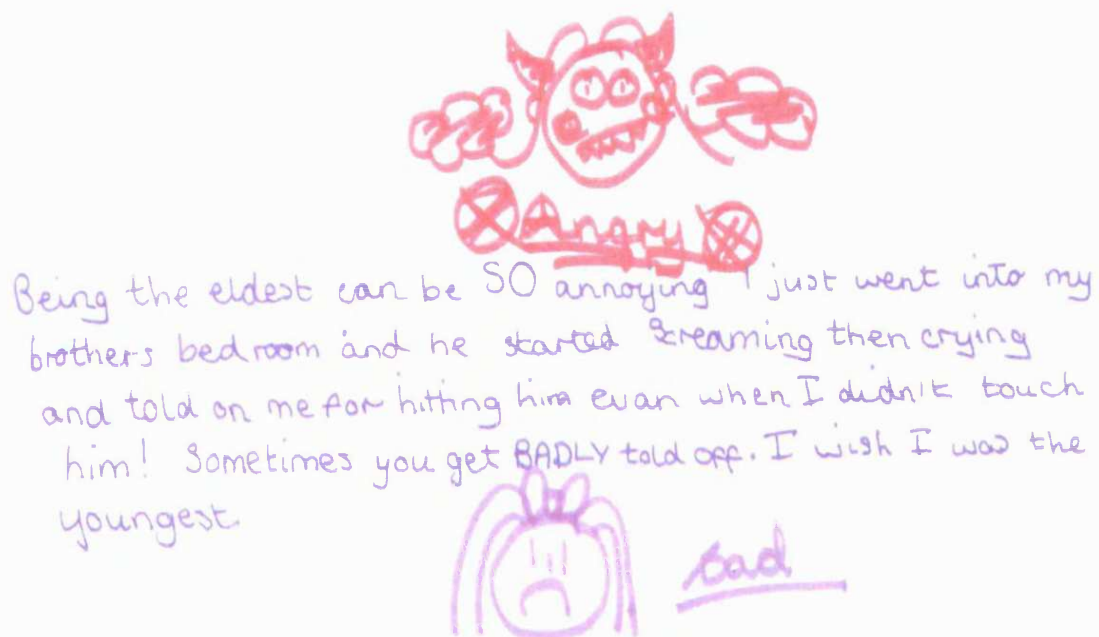 Angry
Being the eldest can be SO annoying I just went into my
brothers bedroom and he started screaming then crying
and told on me for hitting him evan when I didn't touch
him! Sometimes you get BADLY told off. I wish I was the
youngest.
sad